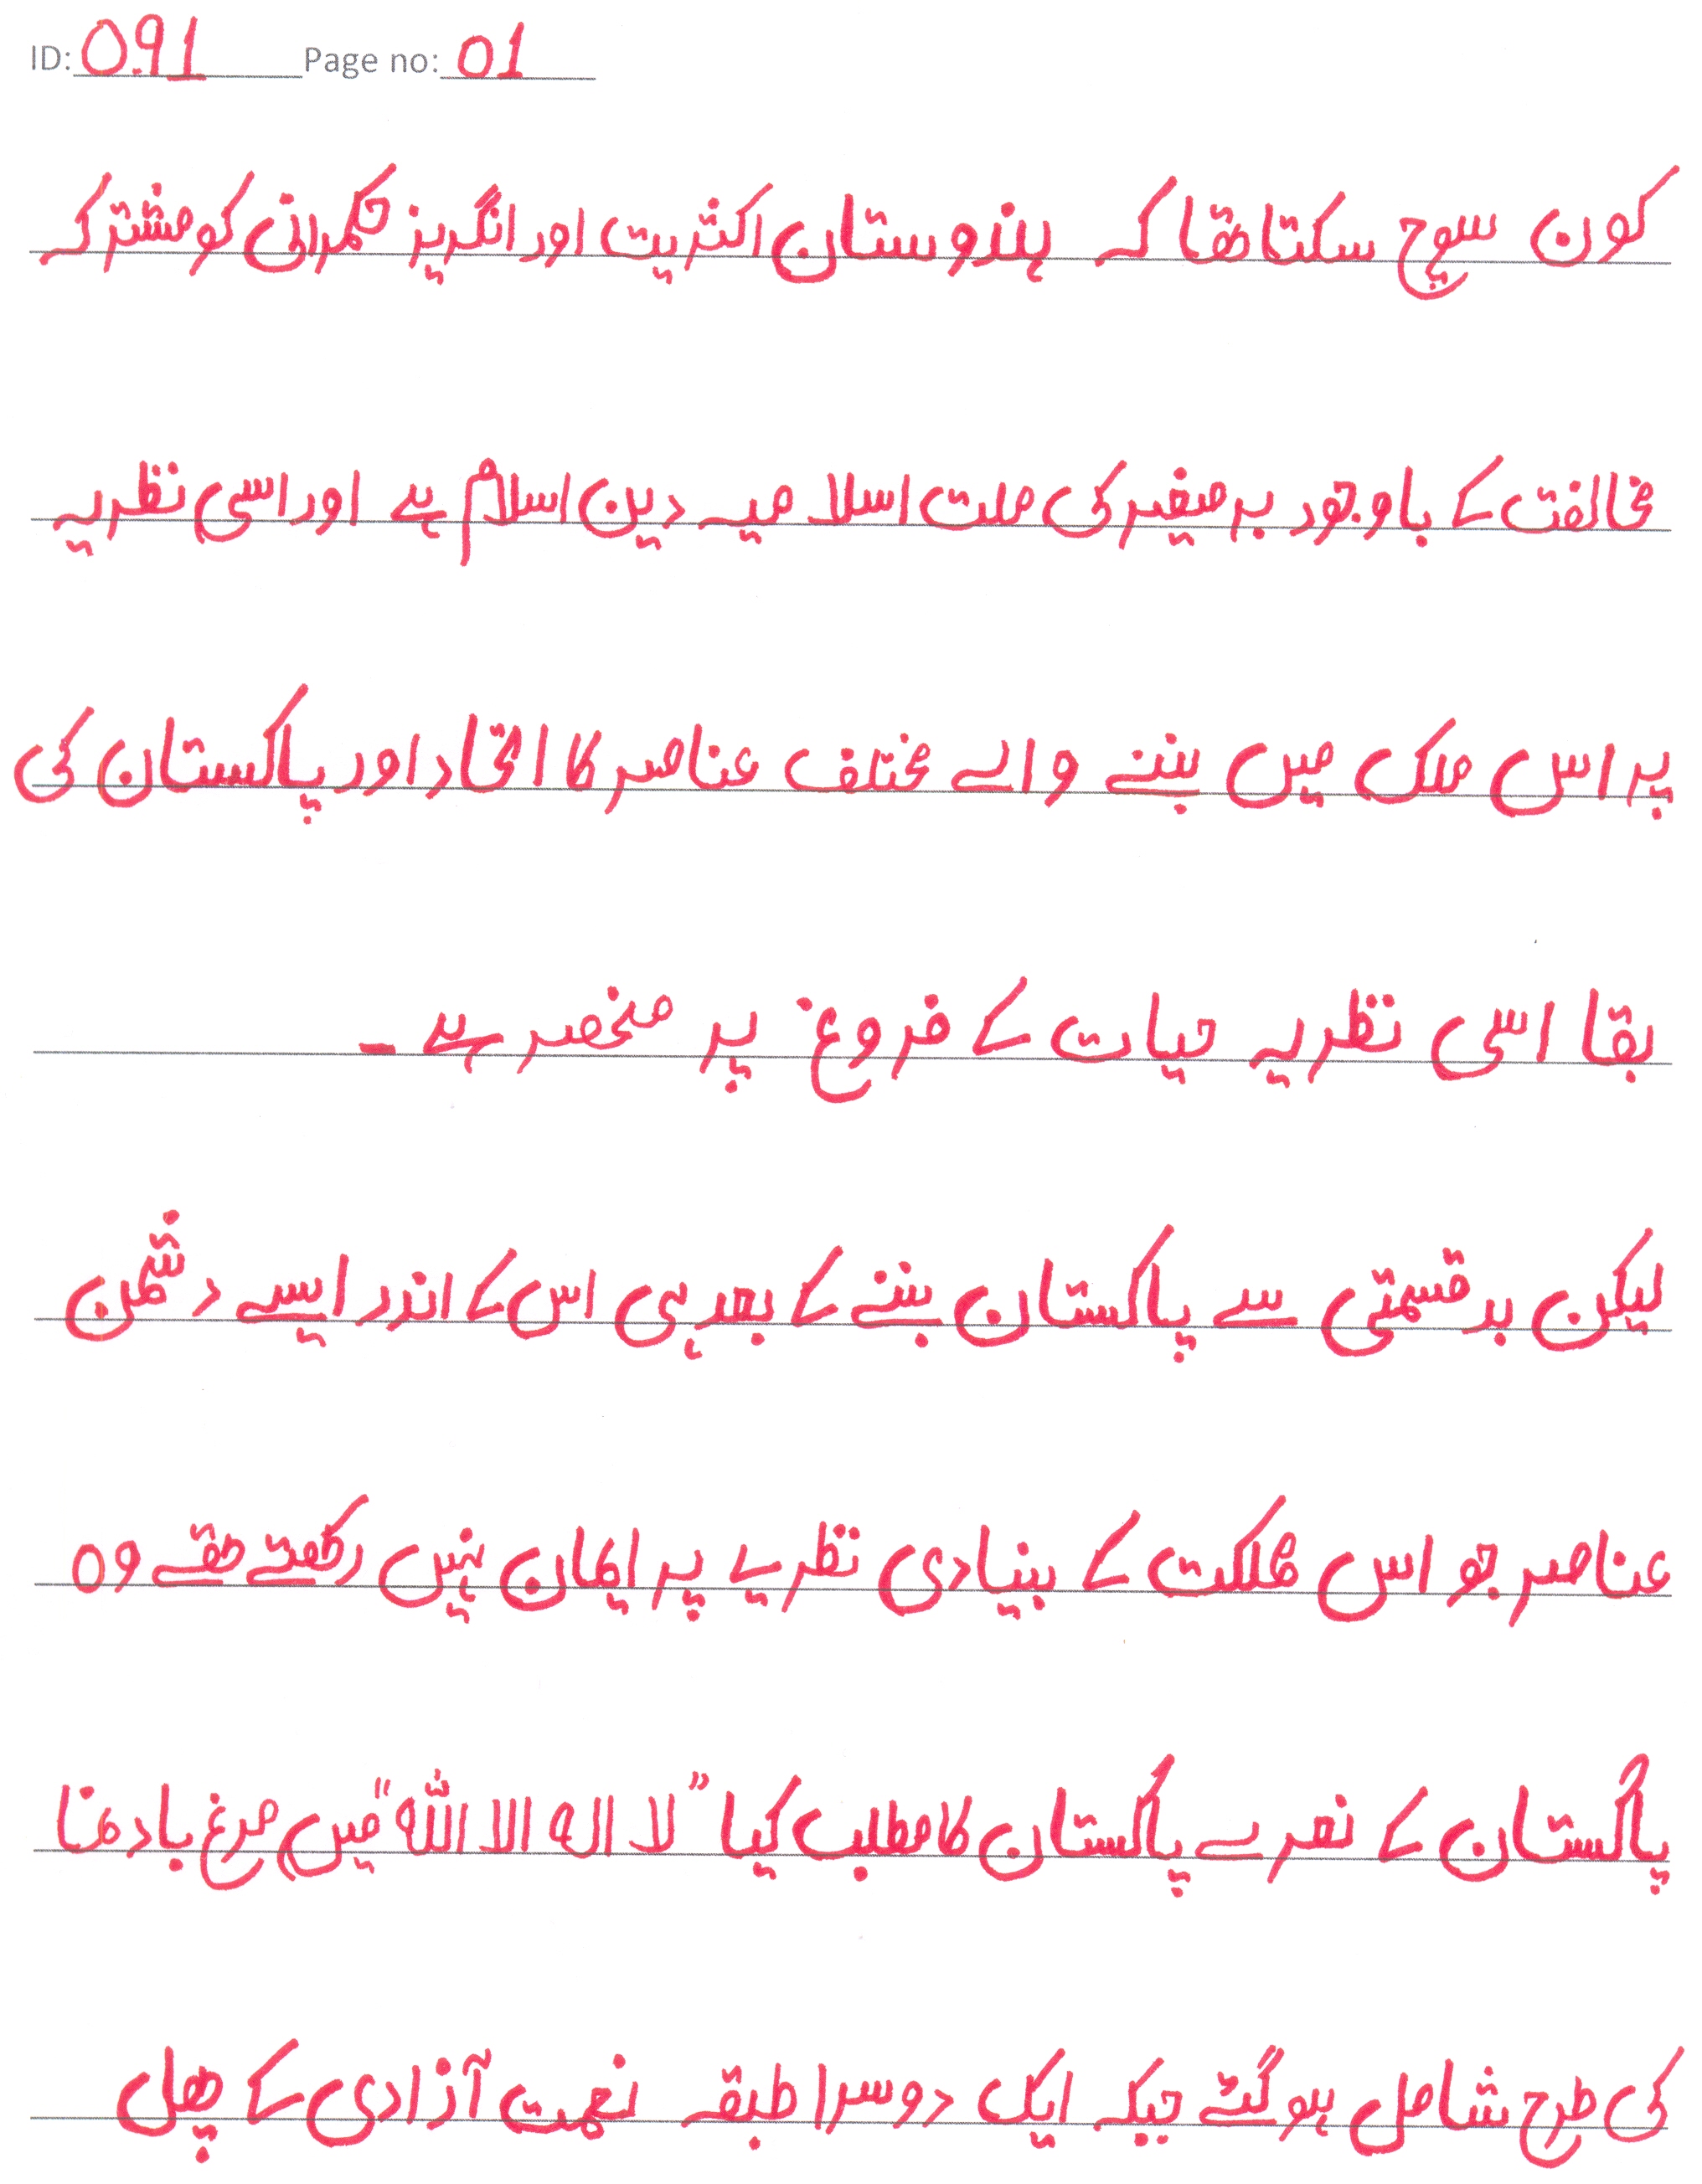 ID: 091 Page no: 01
کون سوچ سکتا تھا کہ ہندوستان اکثریت اور انگریز حکمرانی کو مشترکہ
مخالفت کے باوجود برصغیر کی ملت اسلا میہ دین اسلام ہے اور اسی نظریہ
پر اس ملک میں بننے والے مختلف عناصر کا اتحاد اور پاکستان کی
بقا اسی نظریہ حیات کے فروغ پر منحصر ہے ۔
لیکن بد قسمتی سے پاکستان بننے کے بعد ہی اس کے اندر ایسے دشمن
عناصر جو اس مملکت کے بنیادی نظریے پر ایمان نہیں رکھتے تھے وہ
پاکستان کے نعرے پاکستان کا مطلب کیا "لا الہ الا اللہ" میں مرغ بادنما
کی طرح شامل ہو گئے جبکہ ایک دوسرا طبقہ نعمت آزادی کے پھل